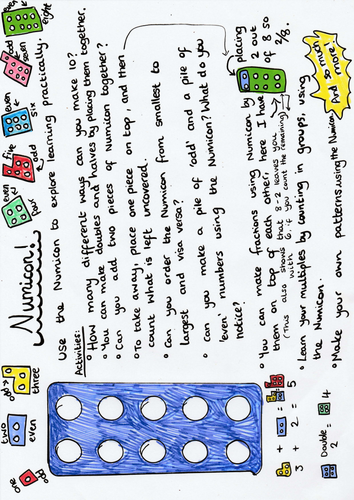 one
odd
two
even
odd
three
Numicon!
even
four
five
odd
even
six
odd
seven
even
eight
Use the Numicon to explore learning practically.
Activities:
• How many different ways can you make 10?
• You can make doubles and halves by placing them together.
• Can you add two pieces of Numicon together?
• To take away, place one piece on top, and then
count what is left uncovered.
• Can you order the Numicon from smallest to
largest and visa versa?
• Can you make a pile of 'odd' and a pile of
'even' numbers using the Numicon? What do you
notice?
• You can make fractions using Numicon by placing
them on top of each other, here I have 2 out
of 8 so
2/8.
(Thus also shows that 8-2 leaves you
with 6 if you count the remaining)
• Learn your multiples by counting in groups, using
the Numicon.
• Make your own patterns using the Numicon.
And so much
more!
3 + 2 = 5
Double
2 = 4